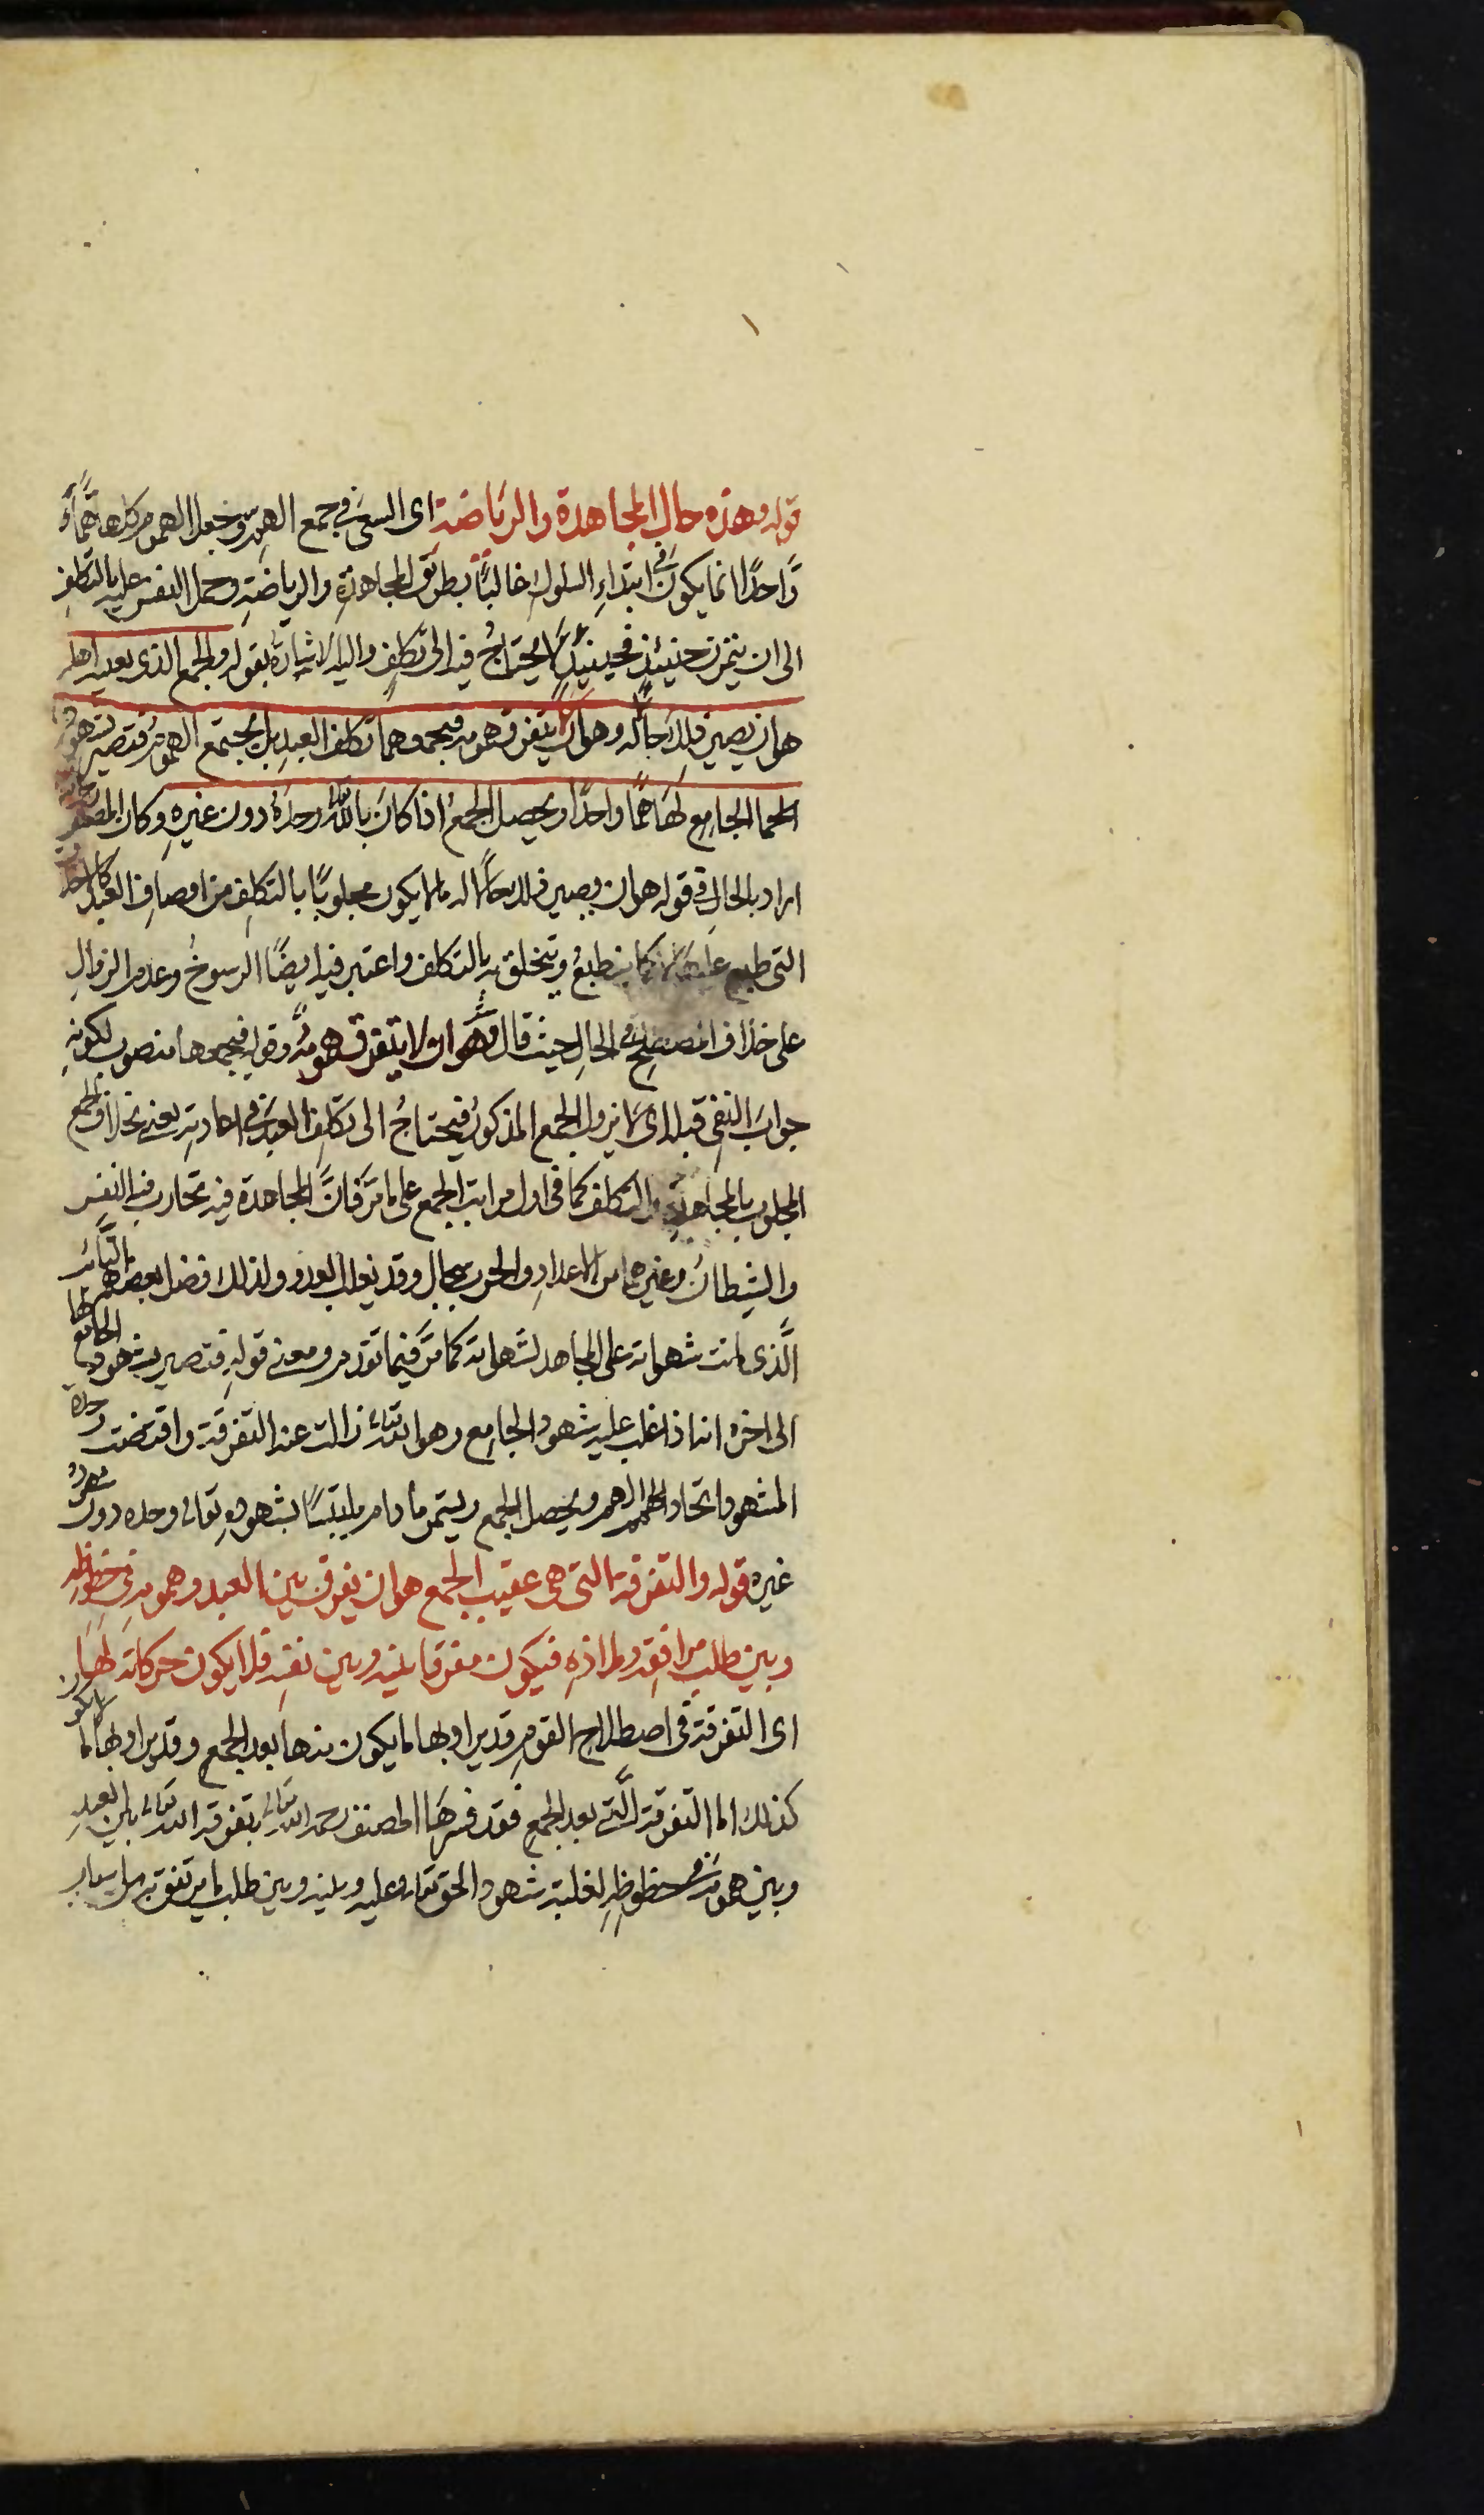 قوله وهذه حال المجاهدة والرياضة اى السعى فى جمع الهمة وجعل الهموم كلها همّا
واحدًا انما يكون فى ابتداءِ السلوك غالبًا بطريق المجاهدة والرياضة وحمل النفس عليه بالتكلف
الى ان يتمرن حينئذ فحينئذ لا يحتاج فيه الى تكلف واليه الاشارة بقوله والجمع الذى يعنيه اهله
هو ان يصير ذلك حالًا له وهو ان لا يتفرق همومه فيجمعها تكلف العبد بل يجتمع الهموم فتصير بشهود
الجامع لها همًا واحدًا ويحصل الجمع اذا كان بالله تعالى وحده دون غيره وكان المصنف
اراد بالحال فى قوله هو ان يصير ذلك حالا له ما لا يكون مجلوبًا بالتكلف من اوصاف العبد
التى طبع عليها ينطبع ويتخلق به بالتكلف واعتبر فيه ايضًا الرسوخ وعدم الزوال
على خلاف المصطلح فى الحال حيث قال وهو ان لا يتفرق همومه وقوله فيجمعها منصوب لكونه
جواب النفى قبله اى لا يزول الجمع المذكور فيحتاج الى تكلف العبد فى اعادته يعنى بخلاف الجمع
المجلوب بالمجاهدة والتكلف كما فى اول مراتب الجمع على ما مرّ فانّ المجاهدة فيه تحارب فيه النفس
والشيطان وغيرهما من الاعداء والحرب سجال وقد يغلب العدو ولذلك فضل بعضهم التائب
الّذى ماتت شهواته على المجاهد لشهواته كما مرّ فيما تقدم ومعنى قوله فتصير بشهود الجامع لها
الى اخره انه اذا غلب عليه شهود الجامع وهو الله تعالى زالت عنه التفرقة واقتضت وحدة
المشهود اتحاد الهمّ ويحصل الجمع ويستمر ما دام ملتبسًا بشهوده تعالى وحده دون شهود
غيره قوله والتفرقة التى هى عقيب الجمع هو ان يفرق بين العبد وهمومه فى حظوظه
وبين طلب مرافقه وملاذه فيكون مفرقا بينه وبين نفسه فلا يكون حركاته لها
اى التفرقة فى اصطلاح القوم قد يراد بها ما يكون منها بعد الجمع وقد يراد بها ما لا يكون
كذلك اما التفرقة الّتى بعد الجمع فقد فسرها المصنف رحمه الله تعالى بتفرقة الله تعالى بين العبد
وبين همومه فى حظوظه لغلبة شهود الحق تعالى عليه وبينه وبين طلب ما يرتفق به من اسباب